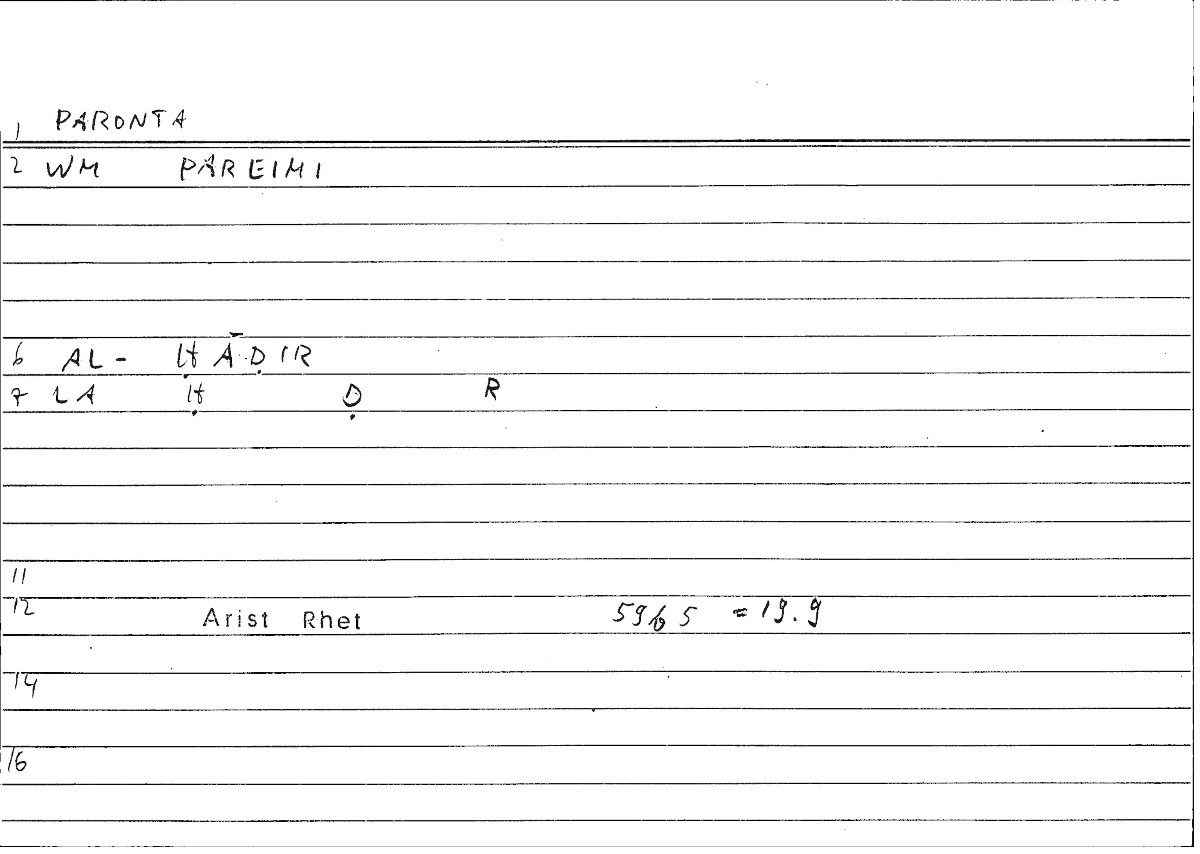 1 PARONTA
2 WM PAREIMI
6 AL- ḤĀḌIR
7 LA Ḥ Ḍ R
11
12 Arist Rhet 59b5 = 19.9
14
16